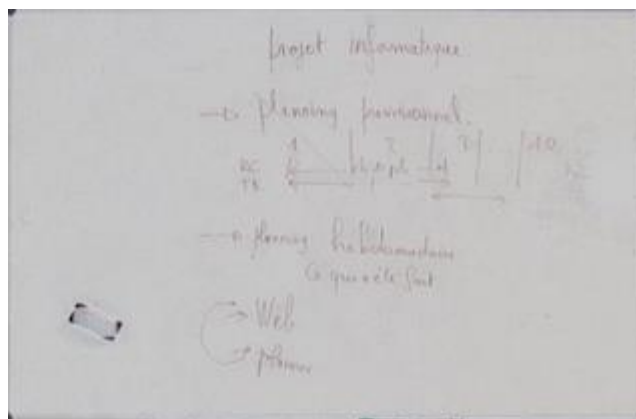 projet informatique
→ planning prévisionnel.
1 2 3 10
RC
TR
→ planning hebdomadaire
ce qui a été fait
→ Web